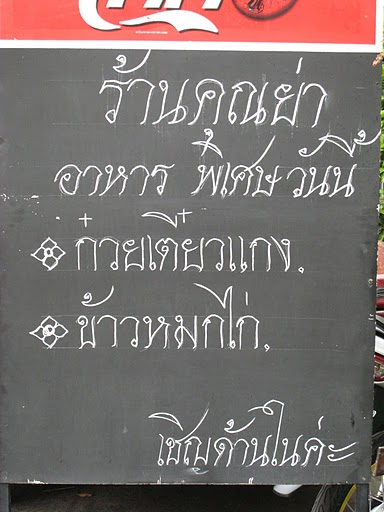 ร้านคุณย่า
อาหาร พิเศษวันนี้
ก๋วยเตี๋ยวแกง.
ข้าวหมกไก่.
เชิญด้านในค่ะ